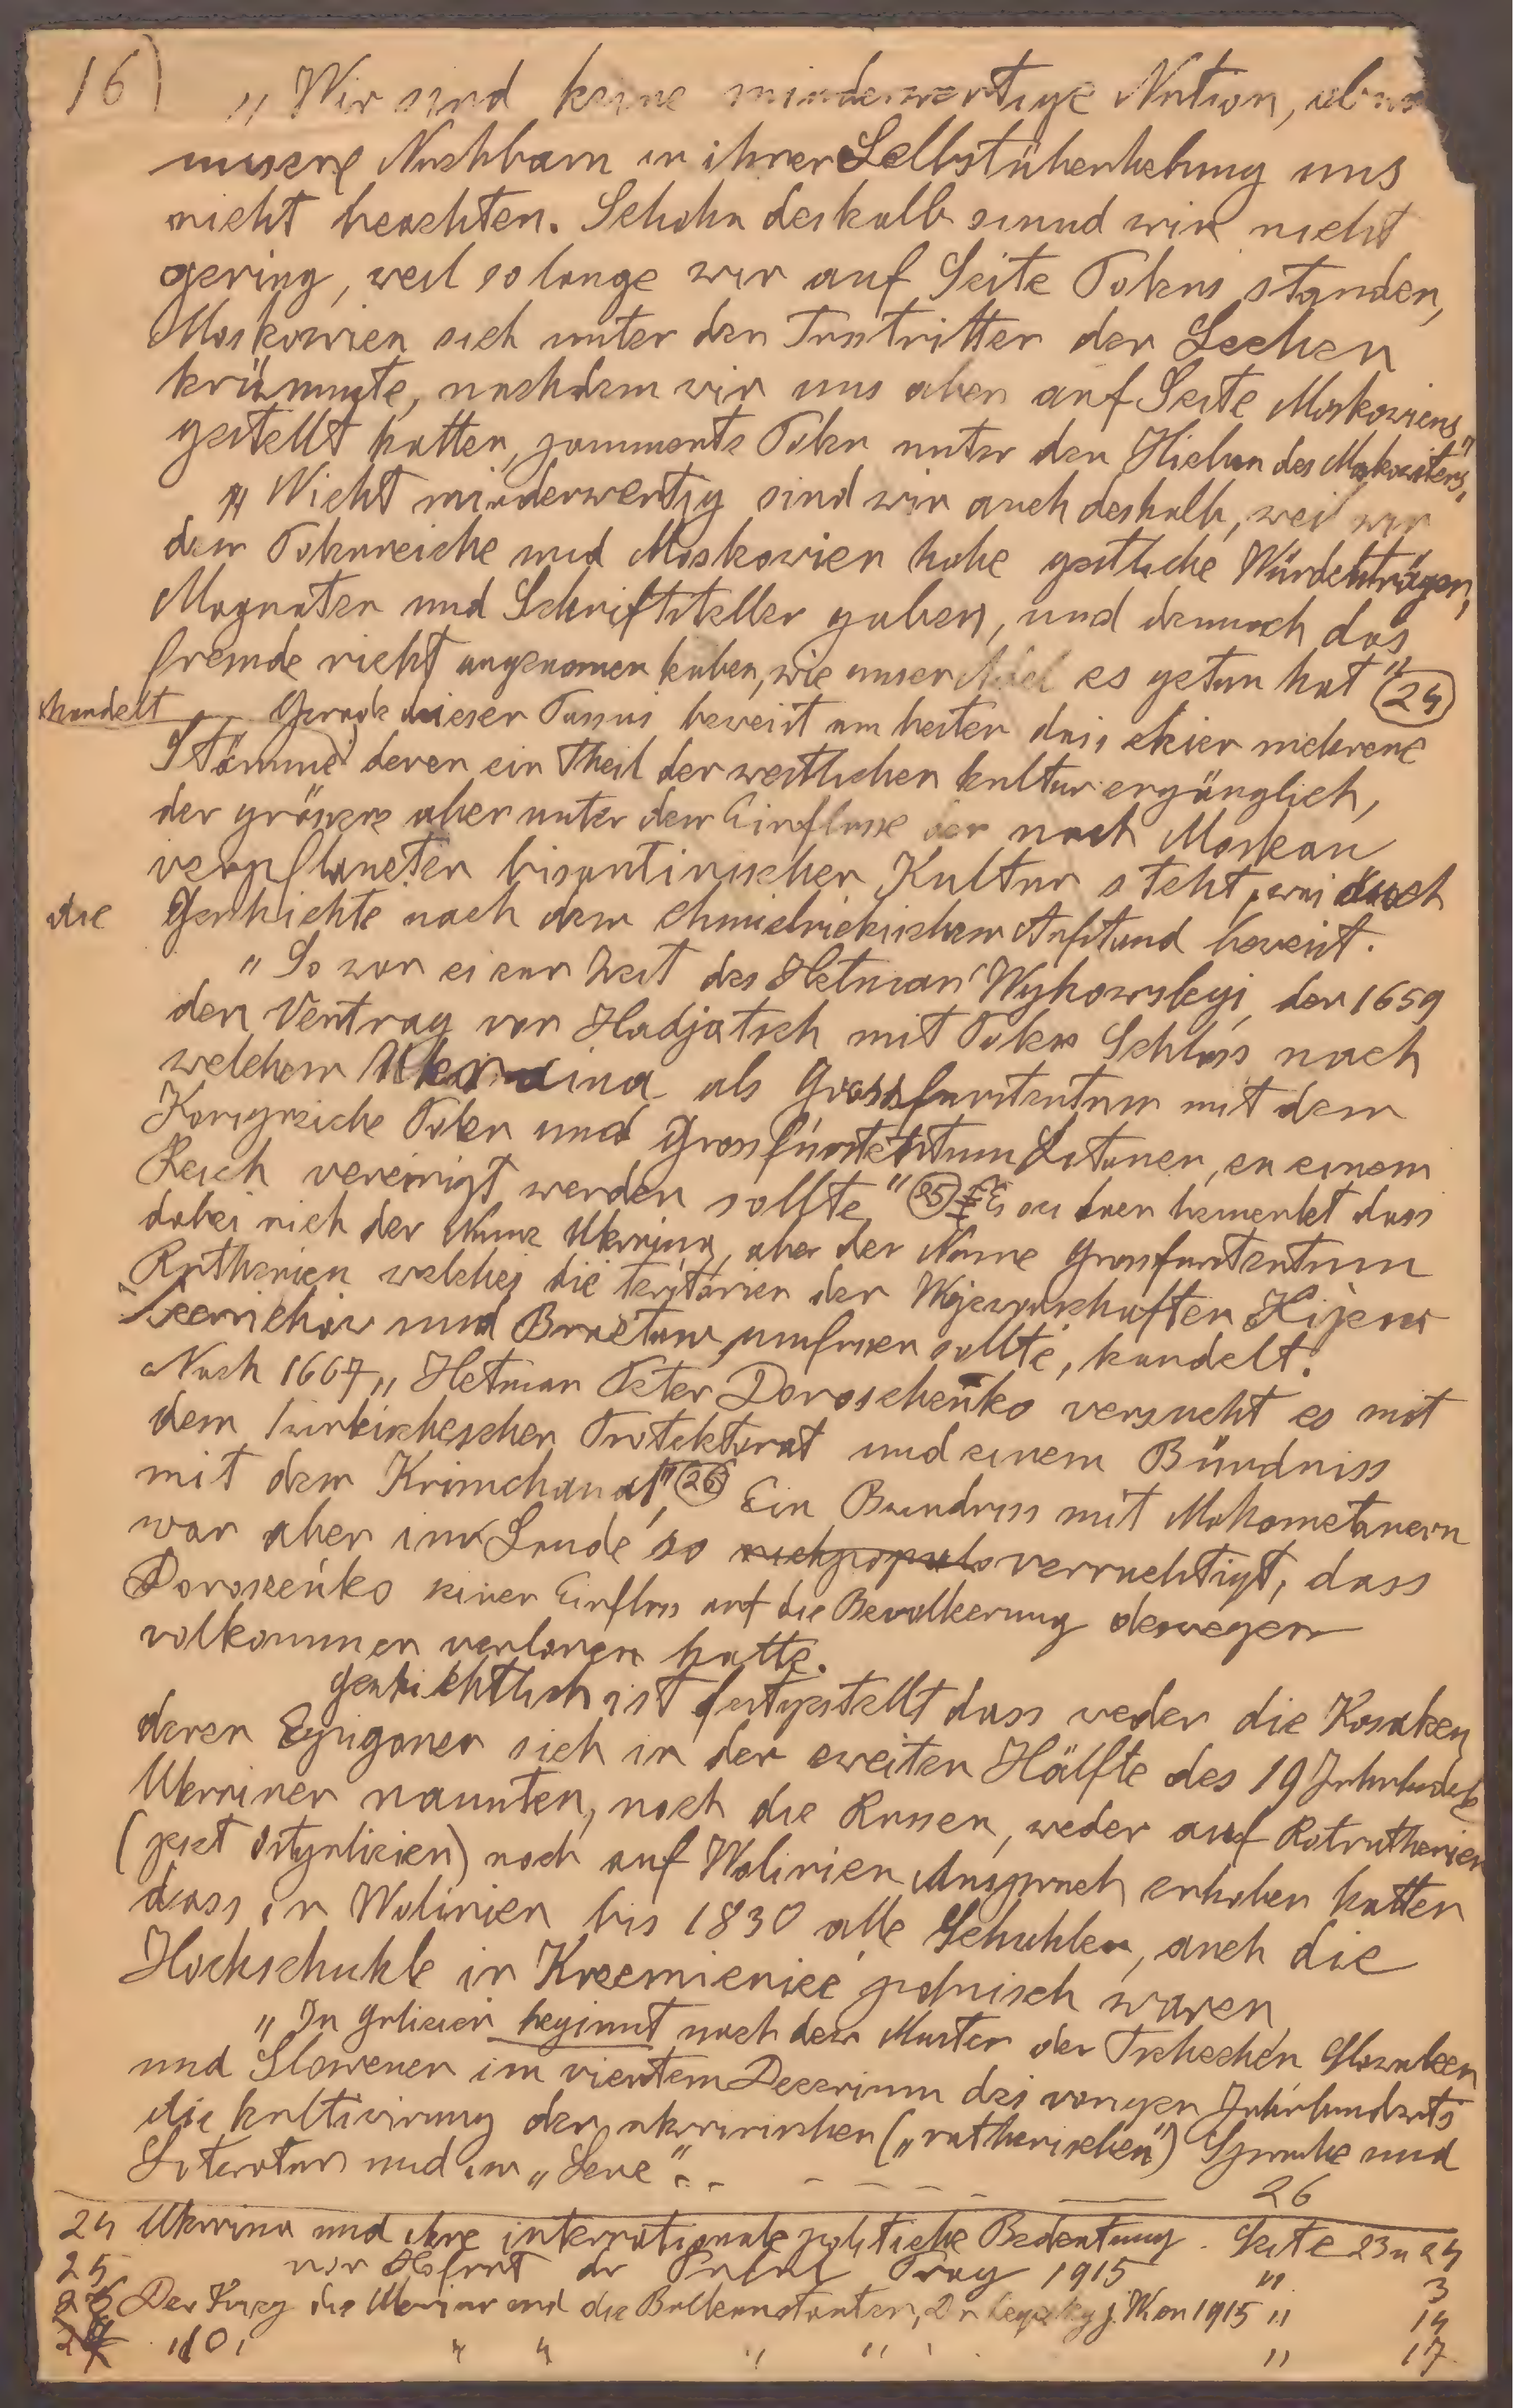 16)
„Wir sind keine minderwertige Nation, 
unsere Nachbarn in ihrer Selbstüberhebung uns
nicht beachten. Schohn deshalb sind wir nicht
gering, weil so lange wir auf Seite Polens standen,
Moskowien sich unter den Fusstritten der Lechen
krümmte, nachdem wir uns aber auf Seite Moskowiens
gestellt hatten, jammerte Polen unter den Hieben des Moskowiters,"
„Nicht minderwertig sind wir auch deshalb, weil wir
dem Polenreiche und Moskowien hohe geistliche Würdenträger,
Magnaten und Schriftsteller gaben, und dennoch das
fremde nicht angenomen haben, wie unser Adel es getan hat" (24)
handelt Gerade dieser Passus beweist am besten dass hier mehrere
Stämme deren ein Theil der westlichen kultur ergänglich,
der grössere aber unter dem Einflusse der nach Moskau
verpflanzten bisantinischen Kultur steht, was auch
die Geschichte nach dem Chmielnickischen Aufstand beweist.
„So war es zur Zeit des Hetman Wyhowskyj, der 1659
den Vertrag von Hadjatsch mit Polen Schloss nach
welchem Ukraina als Grossfurstentum mit dem
Konigreiche Polen und Grossfürstentum Litauen, zu einem
Reich vereinigt werden sollte" (25) Es sei dazu bemerkt dass
dabei nich der Name Ukraina, aber der Name Grossfurstentum
Ruthenien welches die teritorien der Wojewodschaften Kijew
Czernichow und Bractaw umfassen sollte, handelt.
Nach 1667 „Hetman Peter Doroschenko versucht es mit
dem türkischeschen Protektorat und einem Bündniss
mit dem Krimchanat" (26) Ein Bundniss mit Mohometanern
war aber im Lande so verruchtigt, dass
Doroszeńko seinen Einfluss auf die Bevolkerung deswegen
volkommen verloren hatte.
Geschichtlich ist festgestellt dass weder die Kosaken
deren Epigonen sich in der zweiten Hälfte des 19 Jahrhuderts
Ukrainer nannten, noch die Russen, weder auf Rotruthenien
(jezt Ostgalizien) noch auf Wolinien Anspruch erhoben hatten
dass in Wolinien bis 1830 alle Schuhlen, auch die
Hochschuhle in Krzemieniec polnisch waren
„In Galizien beginnt nach dem Muster der Tschechen Slowaken
und Slowenen im viertem Dezenium des vorigen Jahrhunderts
die kultivirung der ukrainischen („ruthenischen") Sprache und
Literatur und im
26
24 Ukraina und ihre internationale politische Bedeutung. Seite 23 u 24
25 von Hofrat dr Prag 1915 " 3
26 Der Krieg die Ukraine und die Balkanstaaten, Dr Wien 1915 " 14
" " " " " 17